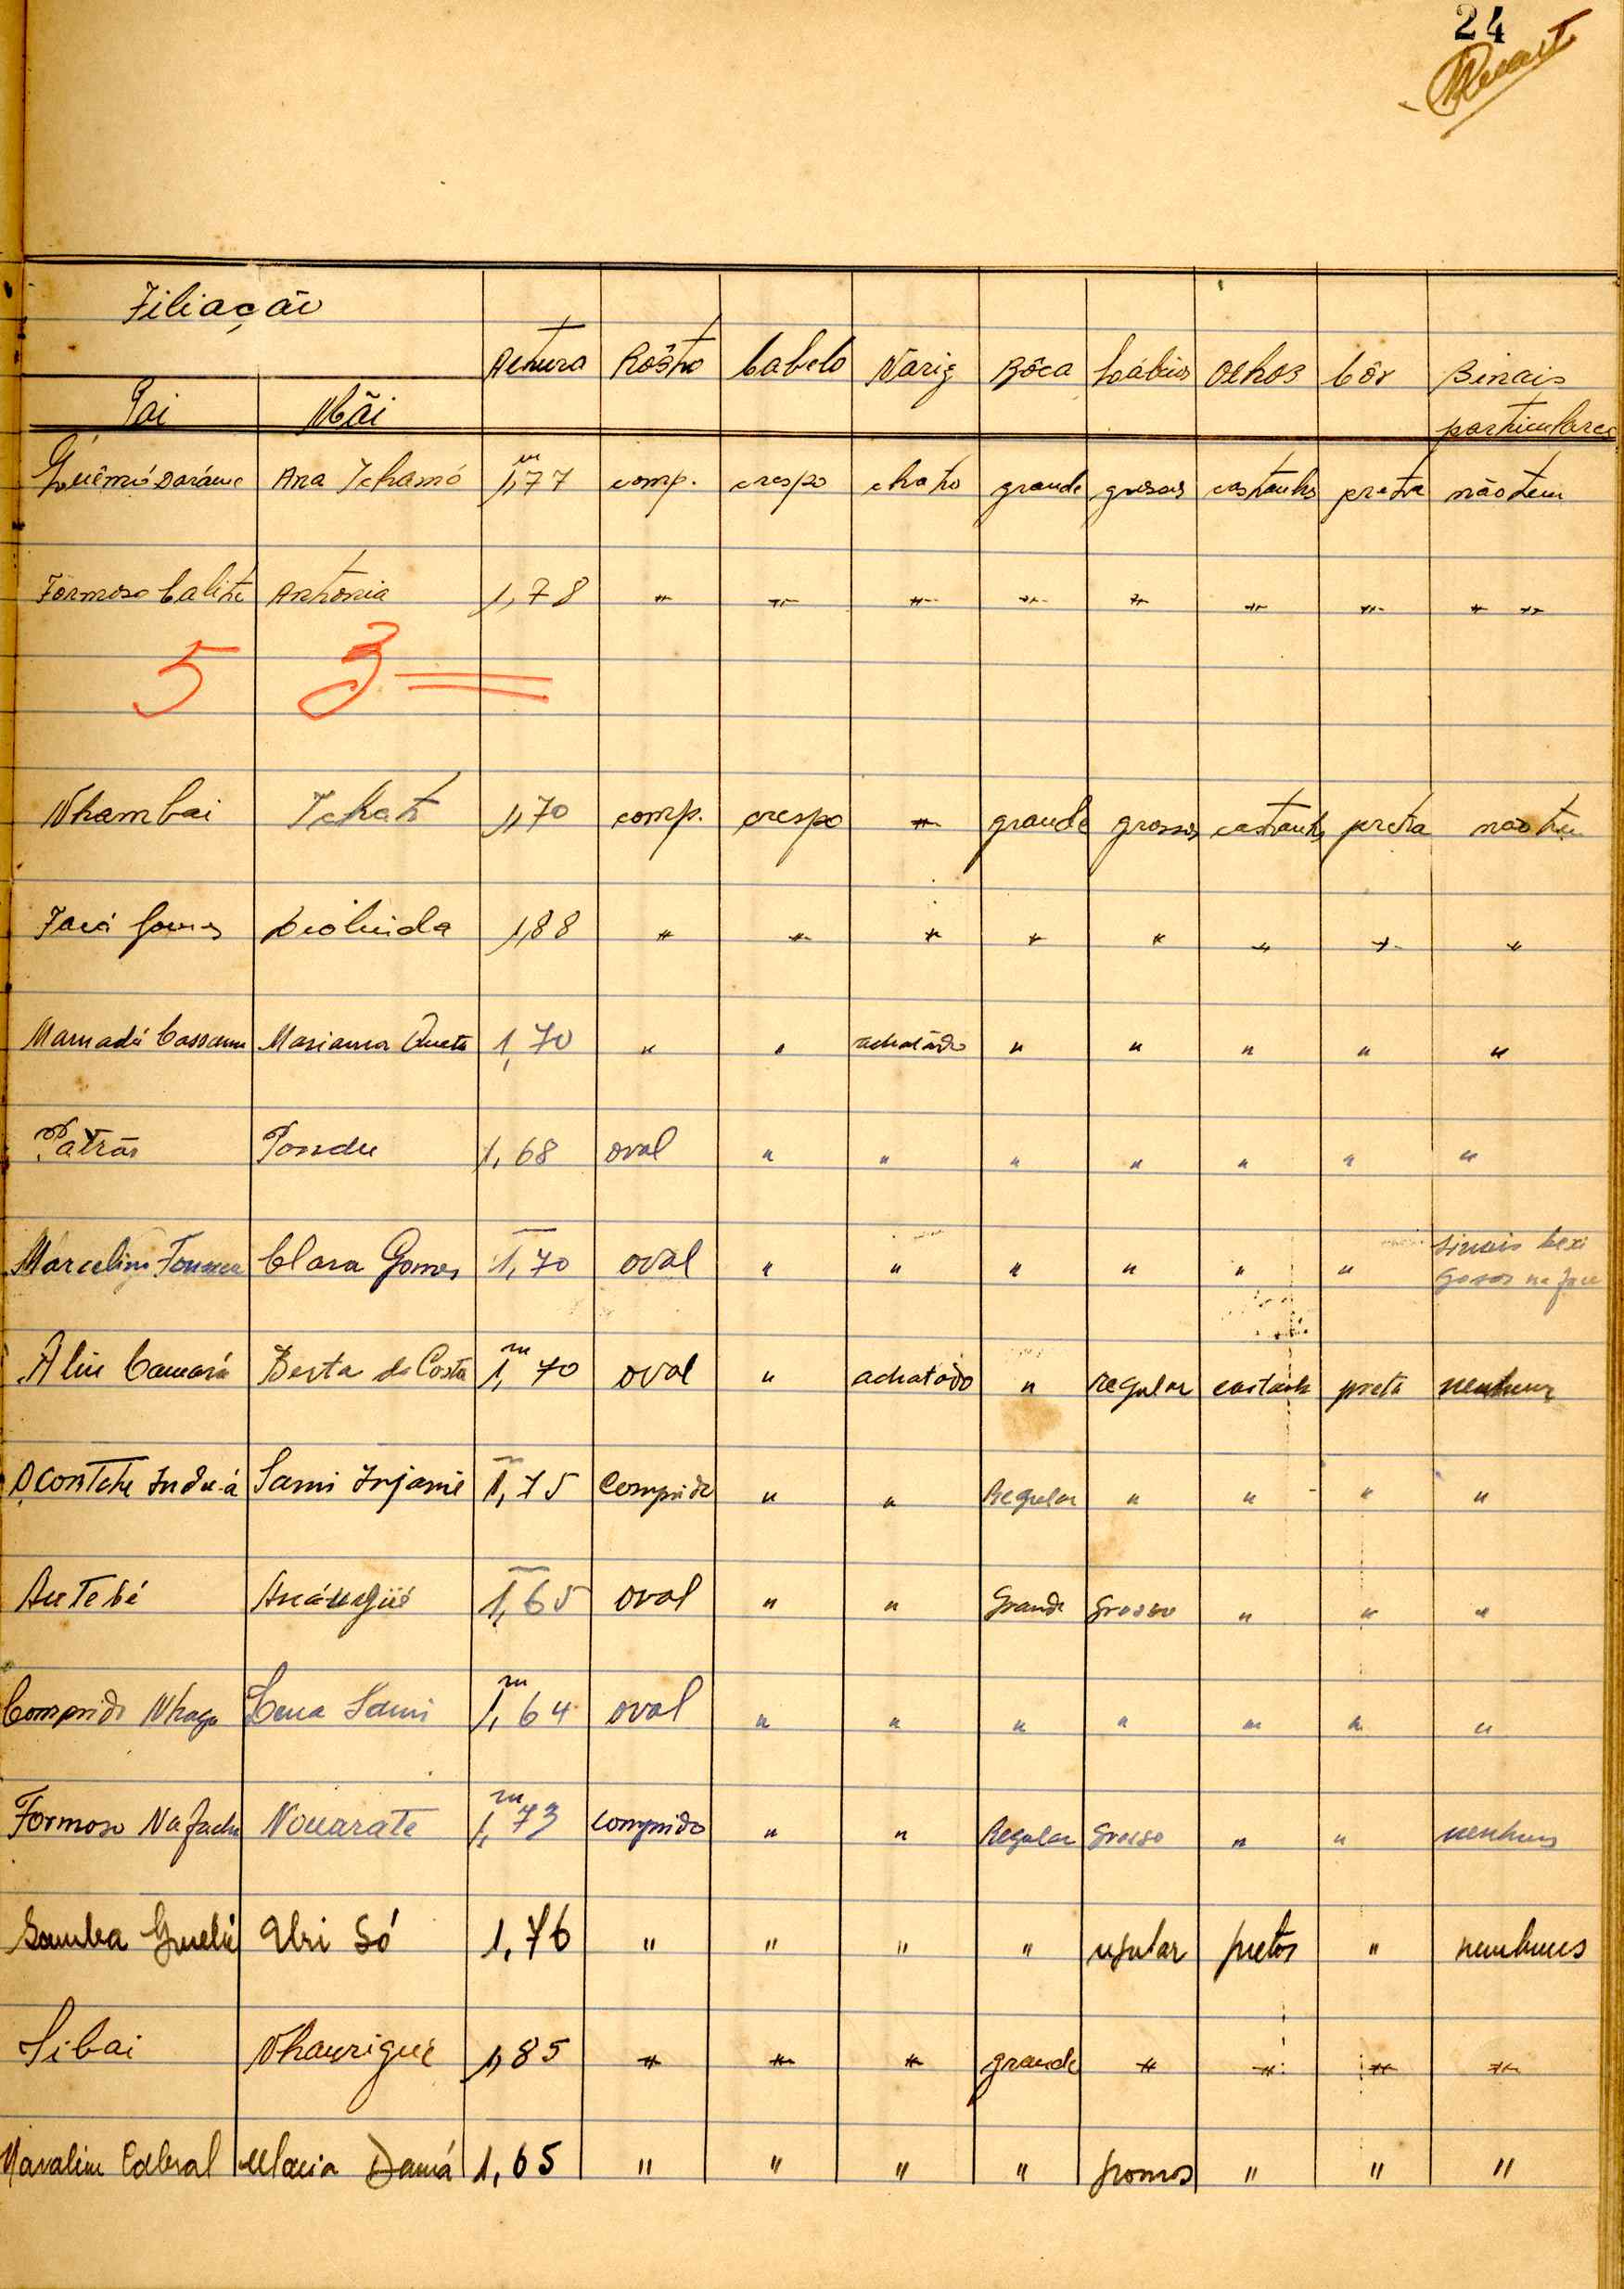 24
Filiação
Altura Rôsto Cabelo Nariz Bôca Lábios Olhos Côr Sinais
Pai Mãi particulares
Quêmó Daráme Ana Tchamó 1,77 m comp. crespo chato grande grossos castanhos preta não tem
Formoso Calite Antonia 1,78 " " " " " " " " "
5 3
Nhambai Tchato 1,70 comp. crespo " grande grossos castanhos preta não tem
Gomes 1,88 " " " " " " " "
Mamadú Cassama Mariama 1,70 " " achatado " " " " "
Patrão Pondu 1,68 oval " " " " " " "
Marcelino Fonseca Clara Gomes 1,70 oval " " " " " " sinais bexi
gosos na face
Aliu Camará Berta da Costa 1,70 m oval " achatado " regular castanh preta nenhum
Ocontche Indu-á Sami Injamé 1,75 Comprido " " Regular " " " "
Antebé 1,65 oval " " Grande Grosso " " "
Comprido Nhaga Lena Sami 1,64 m oval " " " " " " "
Formoso Nafache Nouarate 1,73 m comprido " " Regular Grosso " " nenhuns
Samba Guelé Uri Só 1,76 " " " " regular pretos " nenhuns
Sibai Nhanrigué 1,85 " " " grande " " " "
Cabral Maria Damá 1,65 " " " " grossos " " "